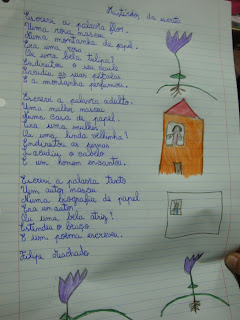 Escrevi a palavra flor.
Numa rosa nasceu
Numa montanha de papel.
Era uma rosa
Ou uma bela tulipa?
Endireitou o seu caule
Sacudiu as suas pétalas
E a montanha perfumou.
Escrevi a palavra adulto.
Uma mulher nasceu
Numa casa de papel.
Era uma mulher
Ou uma linda velhinha?
Endireitou as pernas
Sacudiu o cabelo
E um homem encantou.
Escrevi a palavra texto
Um autor nasceu
Numa biografia de papel
Era um ator
Ou uma bela atriz?
Estendeu o braço
E um poema escreveu.
Filipe Machado